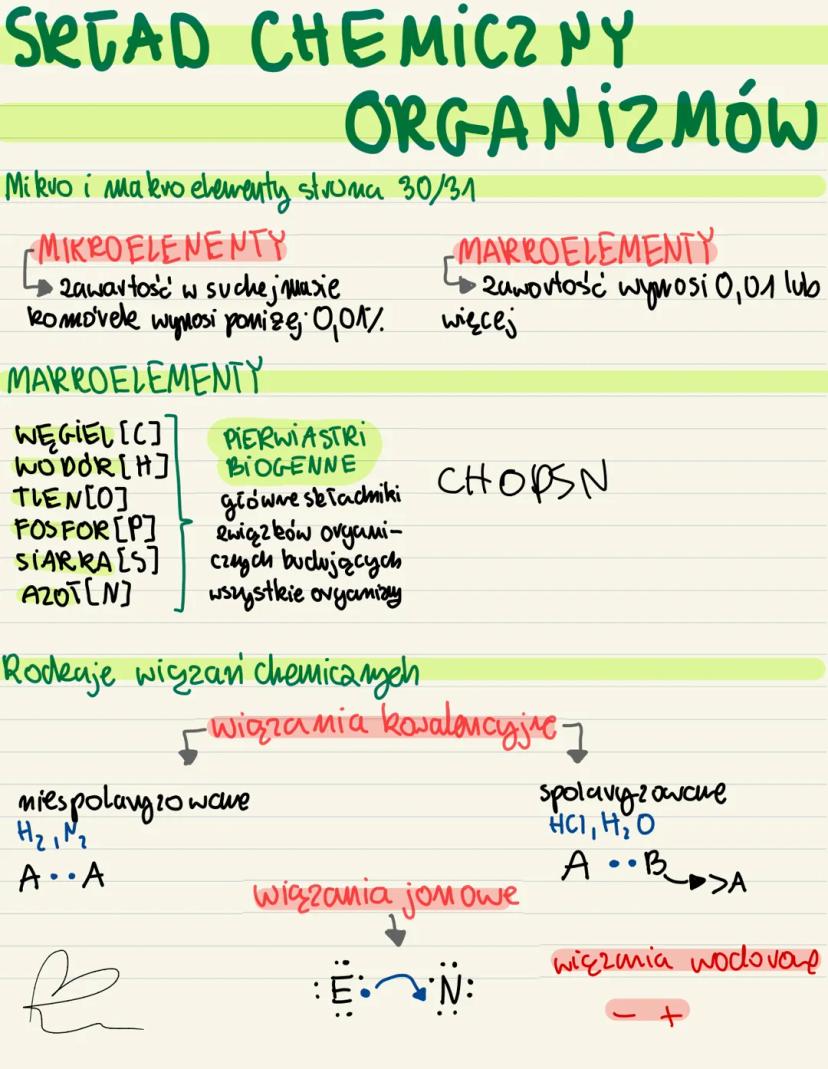 SKŁAD CHEMICZNY
ORGANIZMÓW
Mikro i makroelementy strona 30/31
MIKROELENENTY
zawartość w suchej masie
komórek wynosi poniżej 0,01%.
MAKROELEMENTY
zawartość wynosi 0,01 lub
więcej
MAKROELEMENTY
WĘGIEL [C]
WODÓR [H]
TLEN [O]
FOSFOR [P]
SIARKA [S]
AZOT [N]
PIERWIASTKI
BIOGENNE
główne składniki
związków organi-
cznych budujących
wszystkie organizmy
CHOPSN
Rodzaje wiązań chemicznych
wiązania kowalencyjne
niespolaryzowane
H₂, N₂
A •• A
spolaryzowane
HCl, H₂O
A •• B → >A
wiązania jonowe
:Ë• •N̈:
wiązania wodorowe
- +